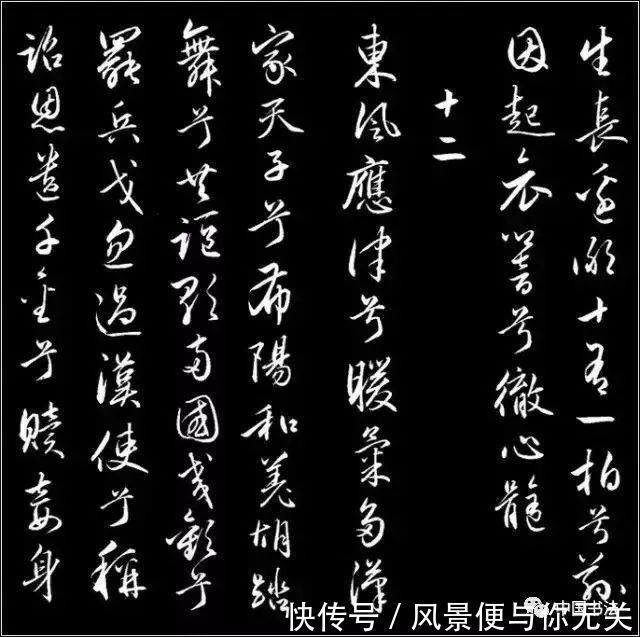 生長邊鄙十有一拍兮茲
因起哀響兮徹心髓
十二
東風應律兮暖氣多漢
家天子兮布陽和羌胡蹈
舞兮共謳歌兩國交歡兮
罷兵戈忽遇漢使兮稱
詔恩遺千金兮贖妾身
中国书法
快传号 / 风景便与你无关